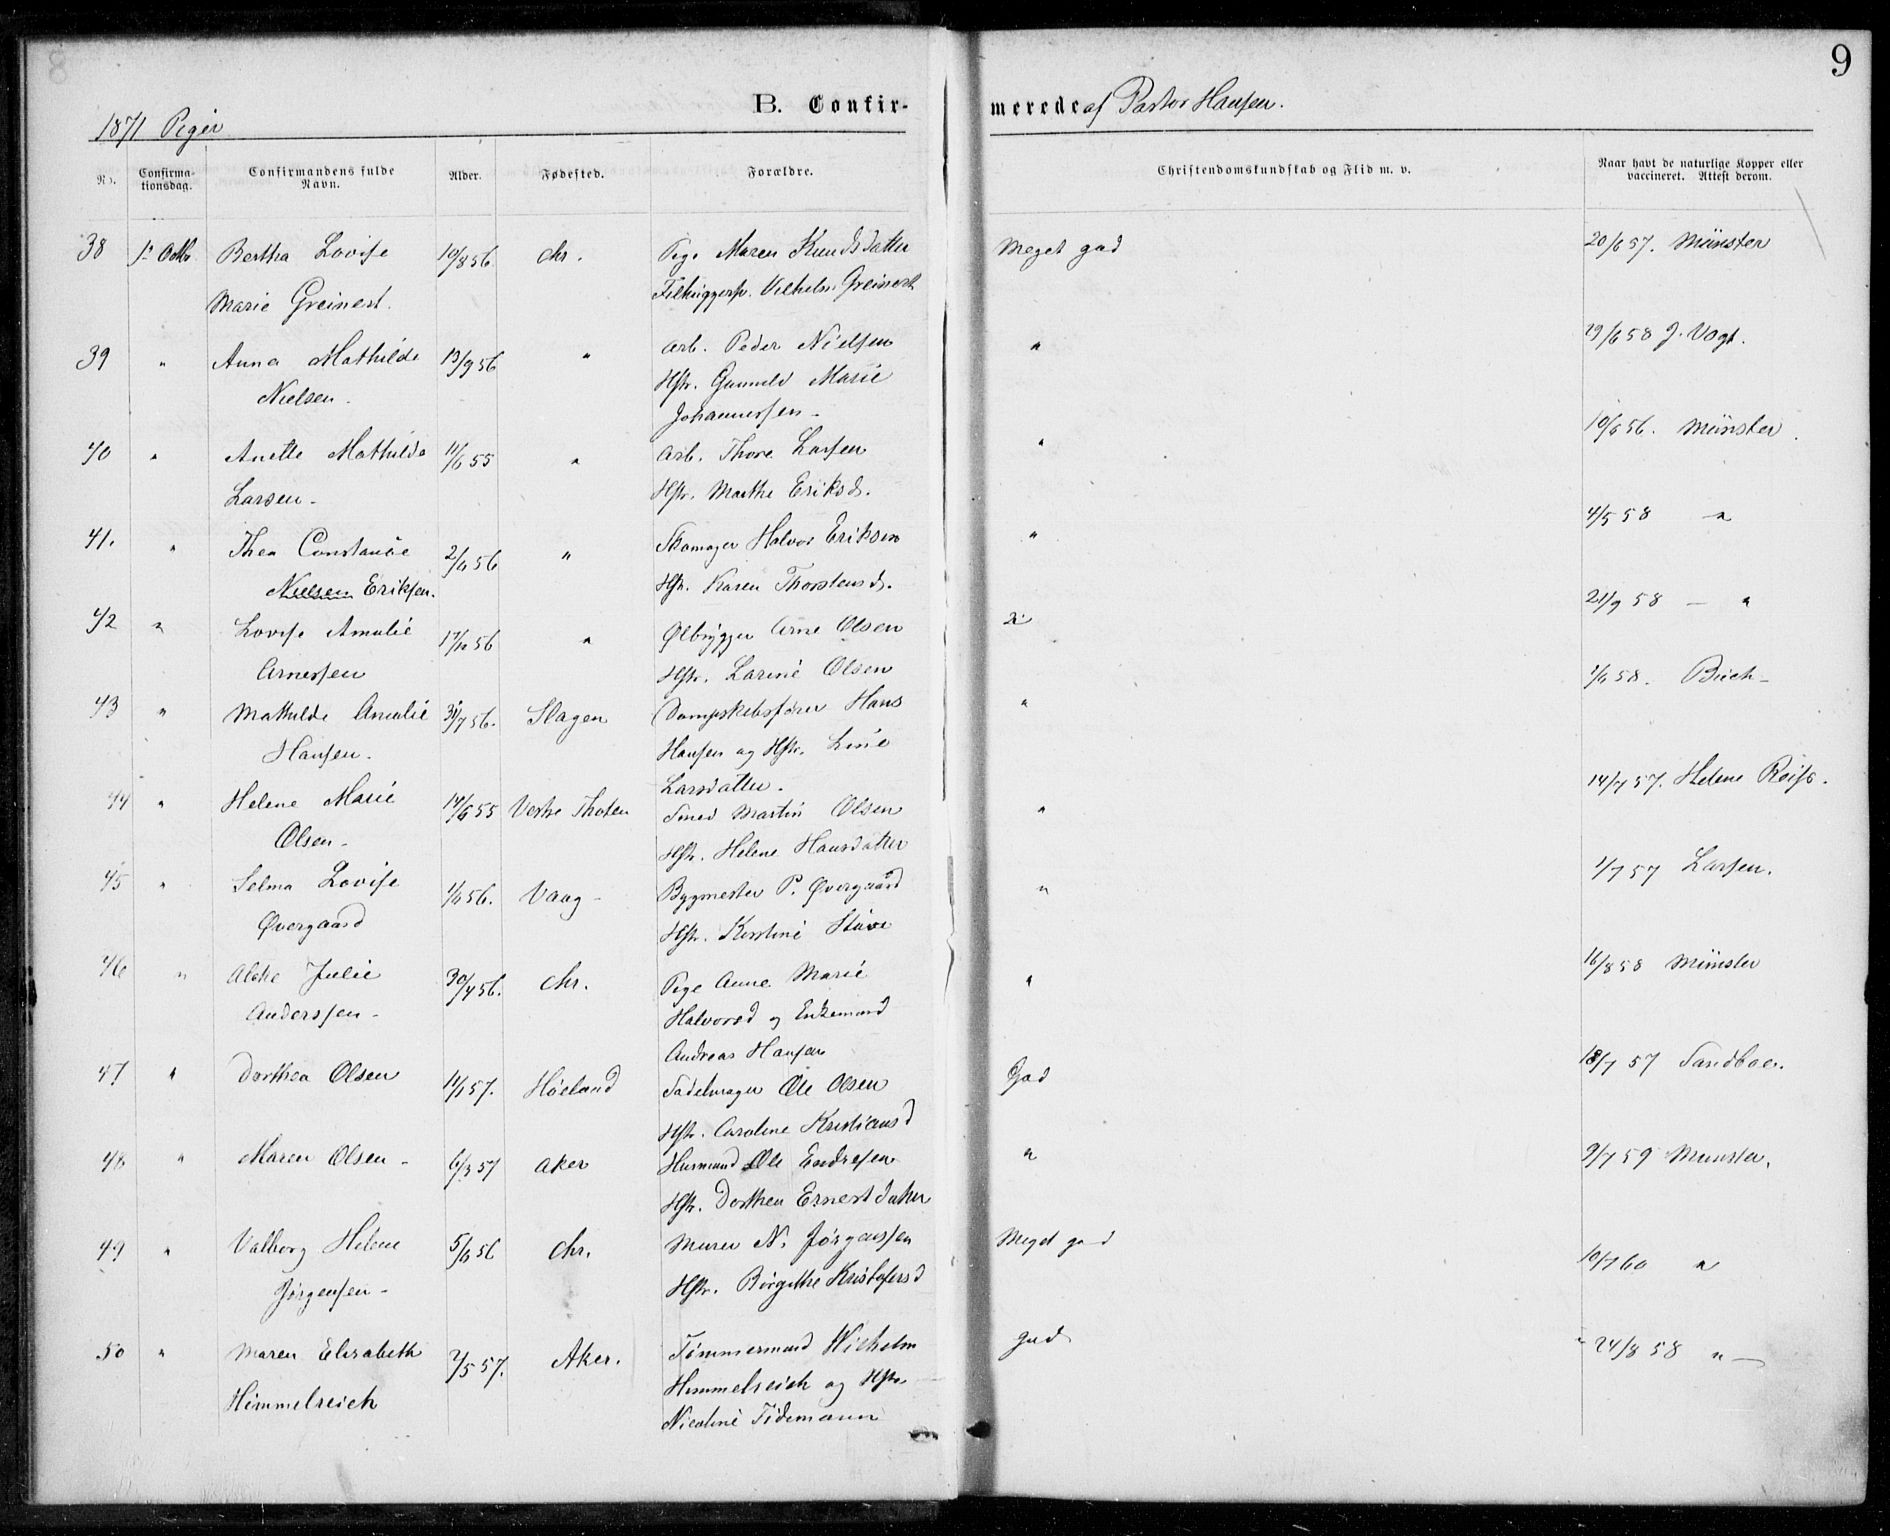 9
B. Confir-merede af Pastor Hansen.
1871 Piger
No. Confirma-tionsdag. Confirmandens fulde Navn. Alder. Fødested. Forældre. Christendomskundskab og Flid m. v. Naar havt de naturlige Kopper eller vaccineret. Attest derom.
38 1ste Octbr. Bertha Lovise 10/8 56 Chr. Pige Maren Knudsdatter Meget god 20/6 57. Münster
Marie Greinert. Vilhelm Greinert
39 " Anna Mathilde 13/9 56 " Arb. Peder Nielsen " 29/6 58 J. Vogt.
Nielsen. Hstr. Gunnild Marie
Johannessen
40 " Anette Mathilde 11/6 55 " Arb. Thore Larsen " 10/6 56. Münster.
Larsen Hstr. Marthe Eriksd.
41. " Thea Constance 2/6 56 " Skomager Halvor Eriksen " 4/5 58 "
Nielsen Eriksen. Hstr. Karen Thorstensd.
42 " Lovise Amalie 17/10 56 " Ølbrygger Arne Olsen " 21/9 58 — "
Arnessen Hstr. Larine Olsen
43 " Mathilde Amalie 31/7 56. Slagen Dampskibsfører Hans " 1/6 58. Buch
Hansen. Hansen og Hstr. Line
Larsdatter.
44 " Helene Marie 14/6 55 Vestre Thoten Smed Martin Olsen " 14/7 57. Helene Reise.
Olsen Hstr. Helene Hansdatter
45 " Selma Lovise 1/6 56. Vaag Bygmester P. Øvergaard " 1/7 57 Larsen.
Øvergaard Hstr. Kirstine
46 " Julie 30/4 56. Chr. Pige Anne Marie " 16/8 58 Münster
Anderssen Halvorsd og Enkemand
Andreas Hansen
47 " Dorthea Olsen 14/1 57. Høeland Sadelmager Ole Olsen God 18/7 57 Sandboe.
Hstr. Caroline Kristiansd
48 " Maren Olsen 6/3 57 Aker Husmand Ole Endresen " 9/7 59 Munster.
Hstr. Dorthea Ernestdatter
49 " Valborg Helene 5/6 56 Chr. Murer N. Jørgenssen Meget god 10/7 60 "
Jørgensen Hstr. Birgithe Kristofersd
50 " Maren Elisabeth 2/5 57. Aker. Tømmermand Wilhelm god 24/8 58 "
Himmelreich Himmelreich og Hstr.
Nicoline Tidemann